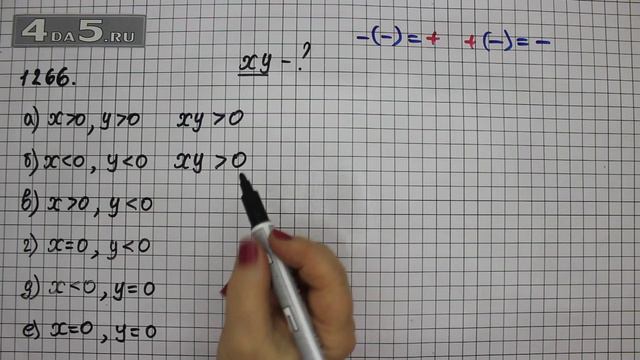 4DA5.RU
-(-) = + +(-) = -
1266. xy - ?
а) x>0, y>0 xy >0
б) x<0, y<0 xy >0
в) x>0, y<0
г) x=0, y<0
д) x<0, y=0
е) x=0, y=0